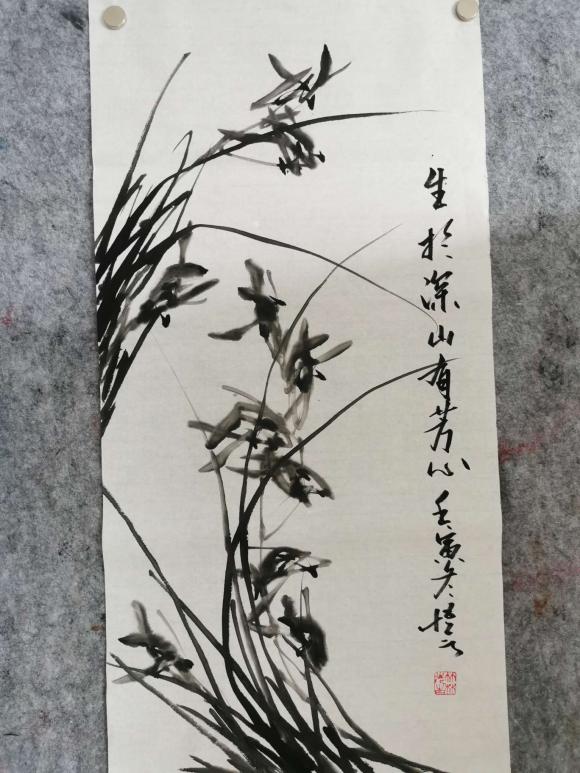 生於深山有芳心 壬寅冬